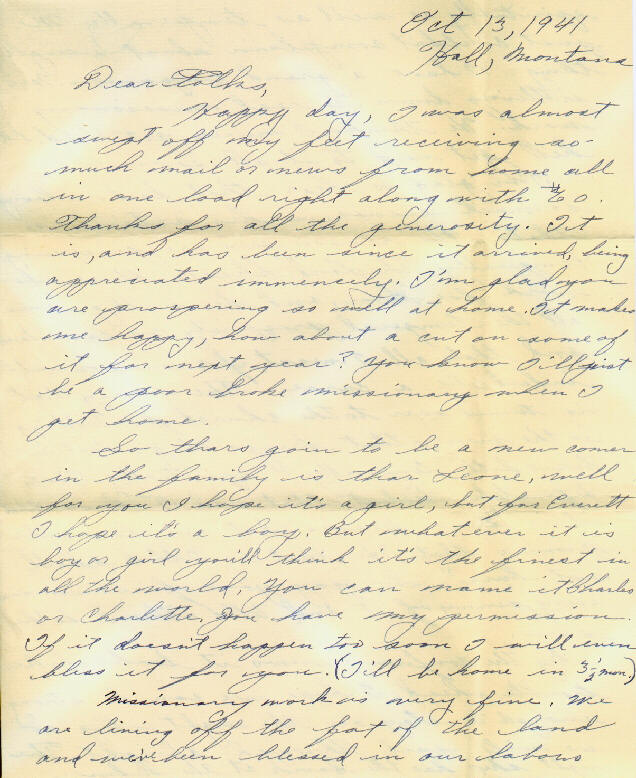 Oct 13, 1941
Hall, Montana
Dear Folks,
Happy day, I was almost
swept off my feet receiving so
much mail or news from home all
in one load right along with $60.
Thanks for all the generosity. It
is, and has been since it arrived, being
appreciated immencely. I'm glad you
are prospering so well at home. It makes
me happy, how about a cut on some of
it for next year? You know I'll just
be a poor broke missionary when I
get home.
So thars goin to be a new comer
in the family is thar Leone, well
for you I hope it's a girl, but for Everett
I hope it's a boy. But what ever it is
boy or girl you'll think it's the finest in
all the world. You can name it Charles
or Charlitte, you have my permission.
If it doesn't happen too soon I will even
bless it for you. (I'll be home in mon.)
Missionary work is very fine. We
are living off the fat of the land
and we've been blessed in our labors